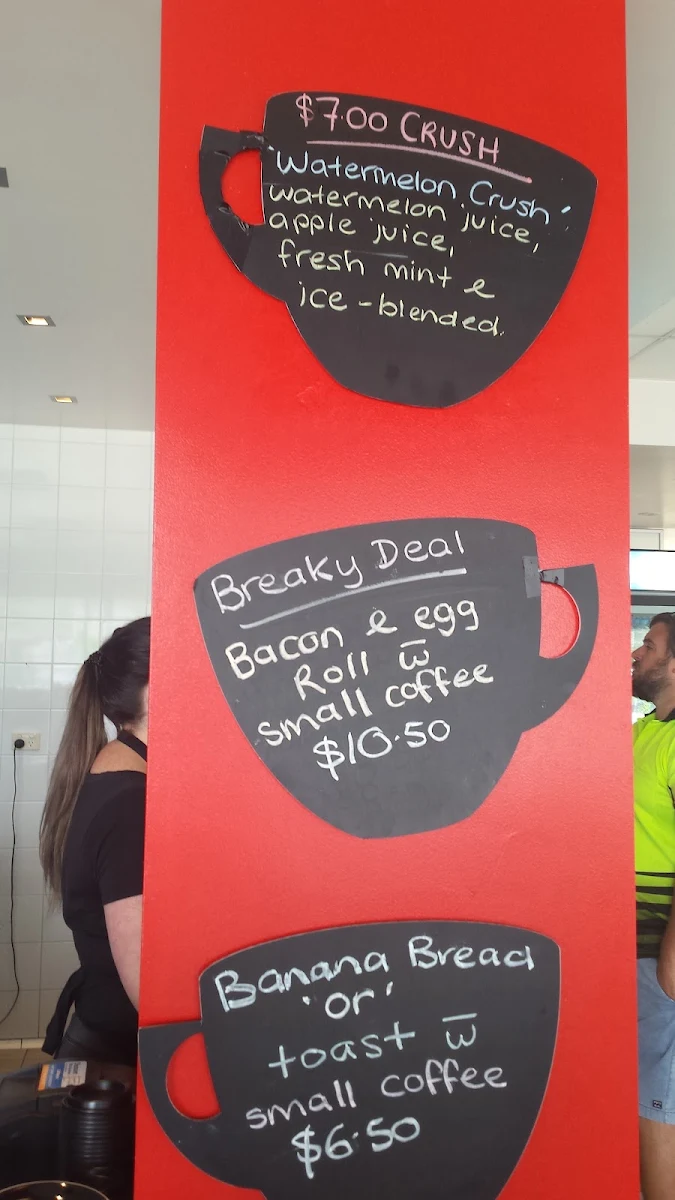 $7.00 CRUSH
'Watermelon Crush'
watermelon juice,
apple juice,
fresh mint &
ice-blended.
Breaky Deal
Bacon & egg
Roll w̅
small coffee
$10.50
Banana Bread
'or'
toast w̅
small coffee
$6.50